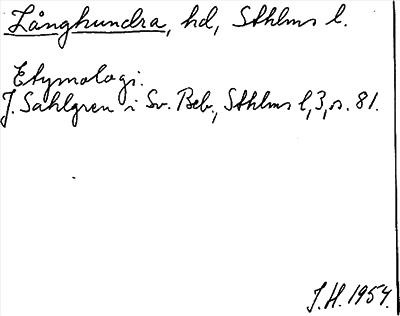 Långhundra, hd, Sthlms l.
Etymologi.
J. Sahlgren i Sv. Beb., Sthlms l, 3, s. 81.
J.H. 1954.